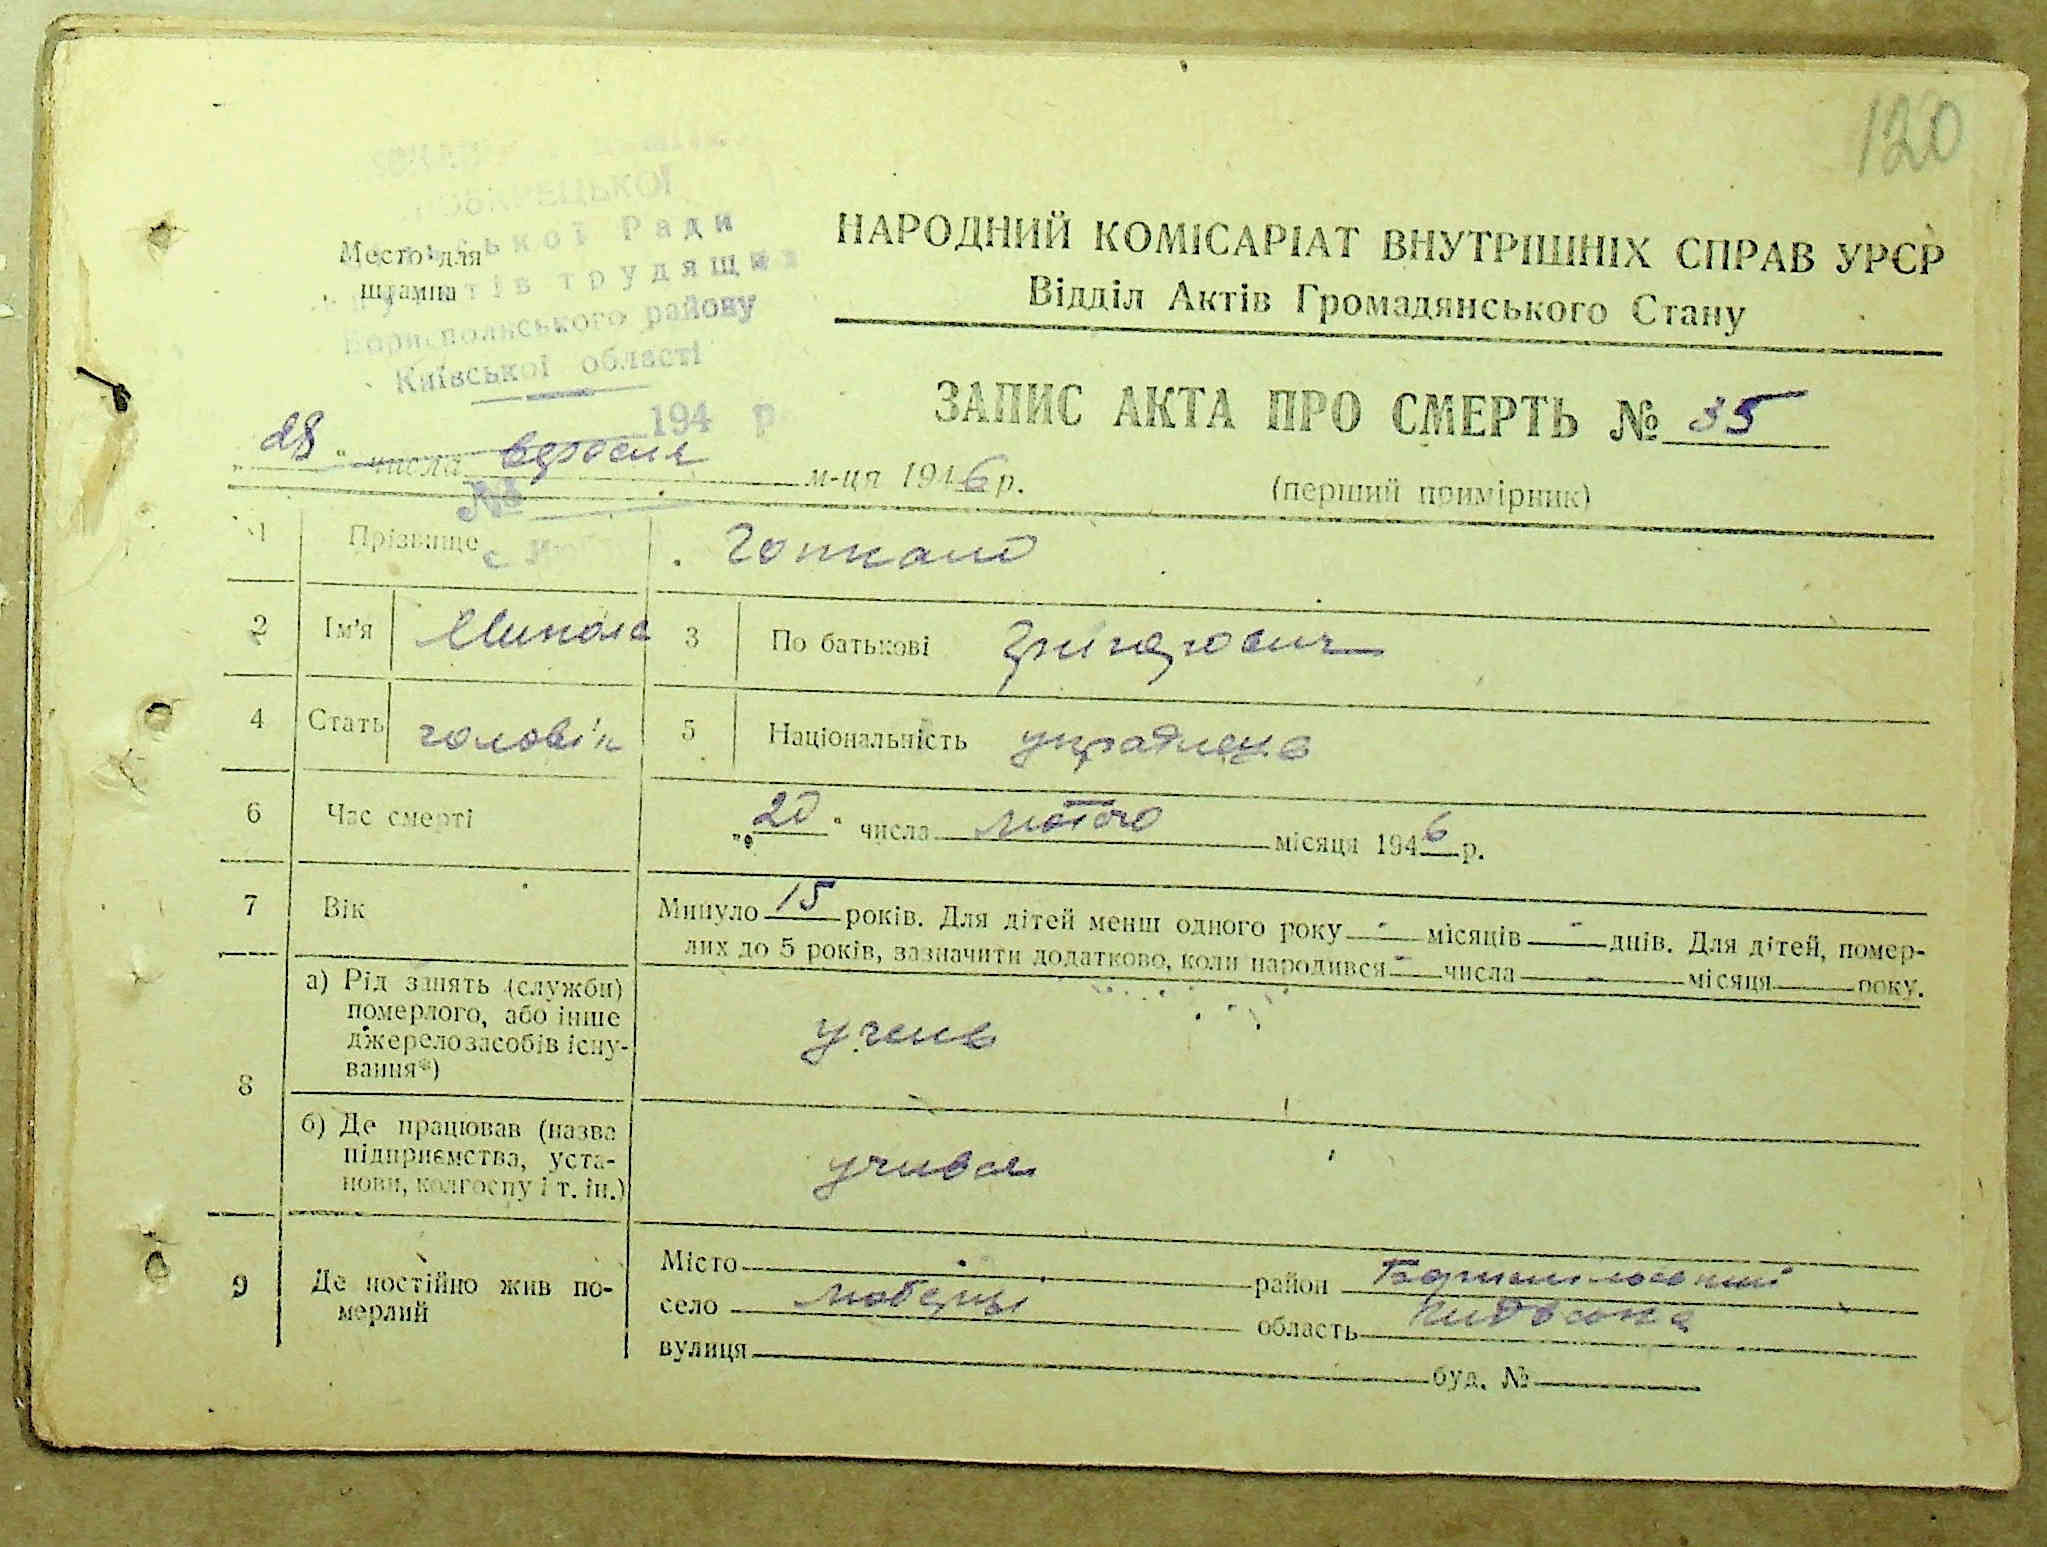 120
Место для
штампа
ької Ради
тів трудящих
Бориспольського району
Київської області
194 р
№
НАРОДНИЙ КОМІСАРІАТ ВНУТРІШНІХ СПРАВ УРСР
Відділ Актів Громадянського Стану
ЗАПИС АКТА ПРО СМЕРТЬ № 35
„28“ числа вересня м-ця 1946 р.
(перший примірник)
1 Прізвище
2 Ім'я Микола 3 По батькові Григорович
4 Стать чоловік 5 Національність
6 Час смерті „20“ числа лютого місяця 1946 р.
7 Вік Минуло 15 років. Для дітей менш одного року - місяців - днів. Для дітей, помер-
лих до 5 років, зазначити додатково, коли народився - числа - місяця року.
8 а) Рід занять (служби)
померлого, або інше
джерело засобів існу-
вання*)
учень
б) Де працював (назва
підприємства, уста-
нови, колгоспу і т. ін.)
учився
9 Де постійно жив по-
мерлий
Місто район Бориспільський
село Любарці область Київська
вулиця буд. №